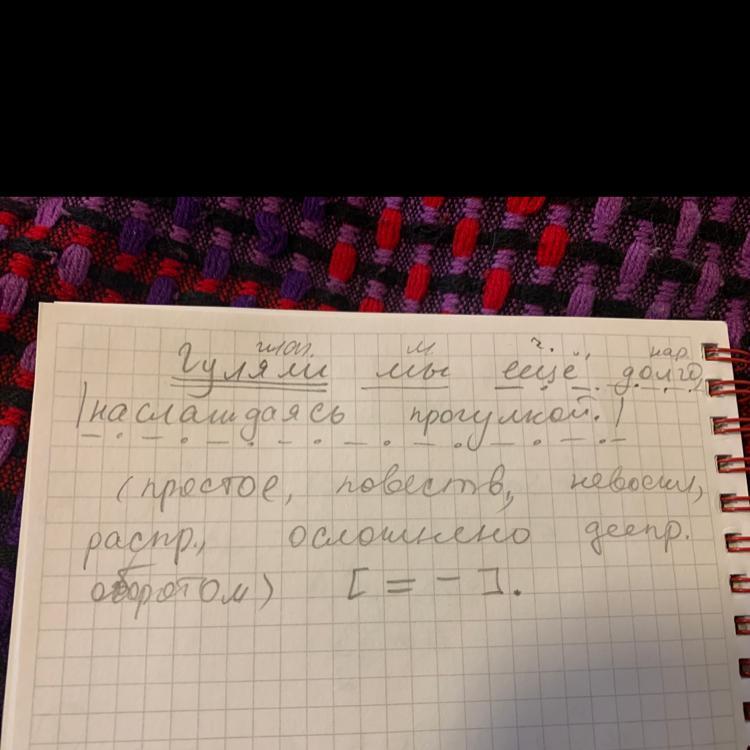 глаг. м. ч. нар.
Гуляли мы ещё долго,
|наслаждаясь прогулкой.|
(простое, повеств., невоскл.,
распр., осложнено деепр.
оборотом) [= –].